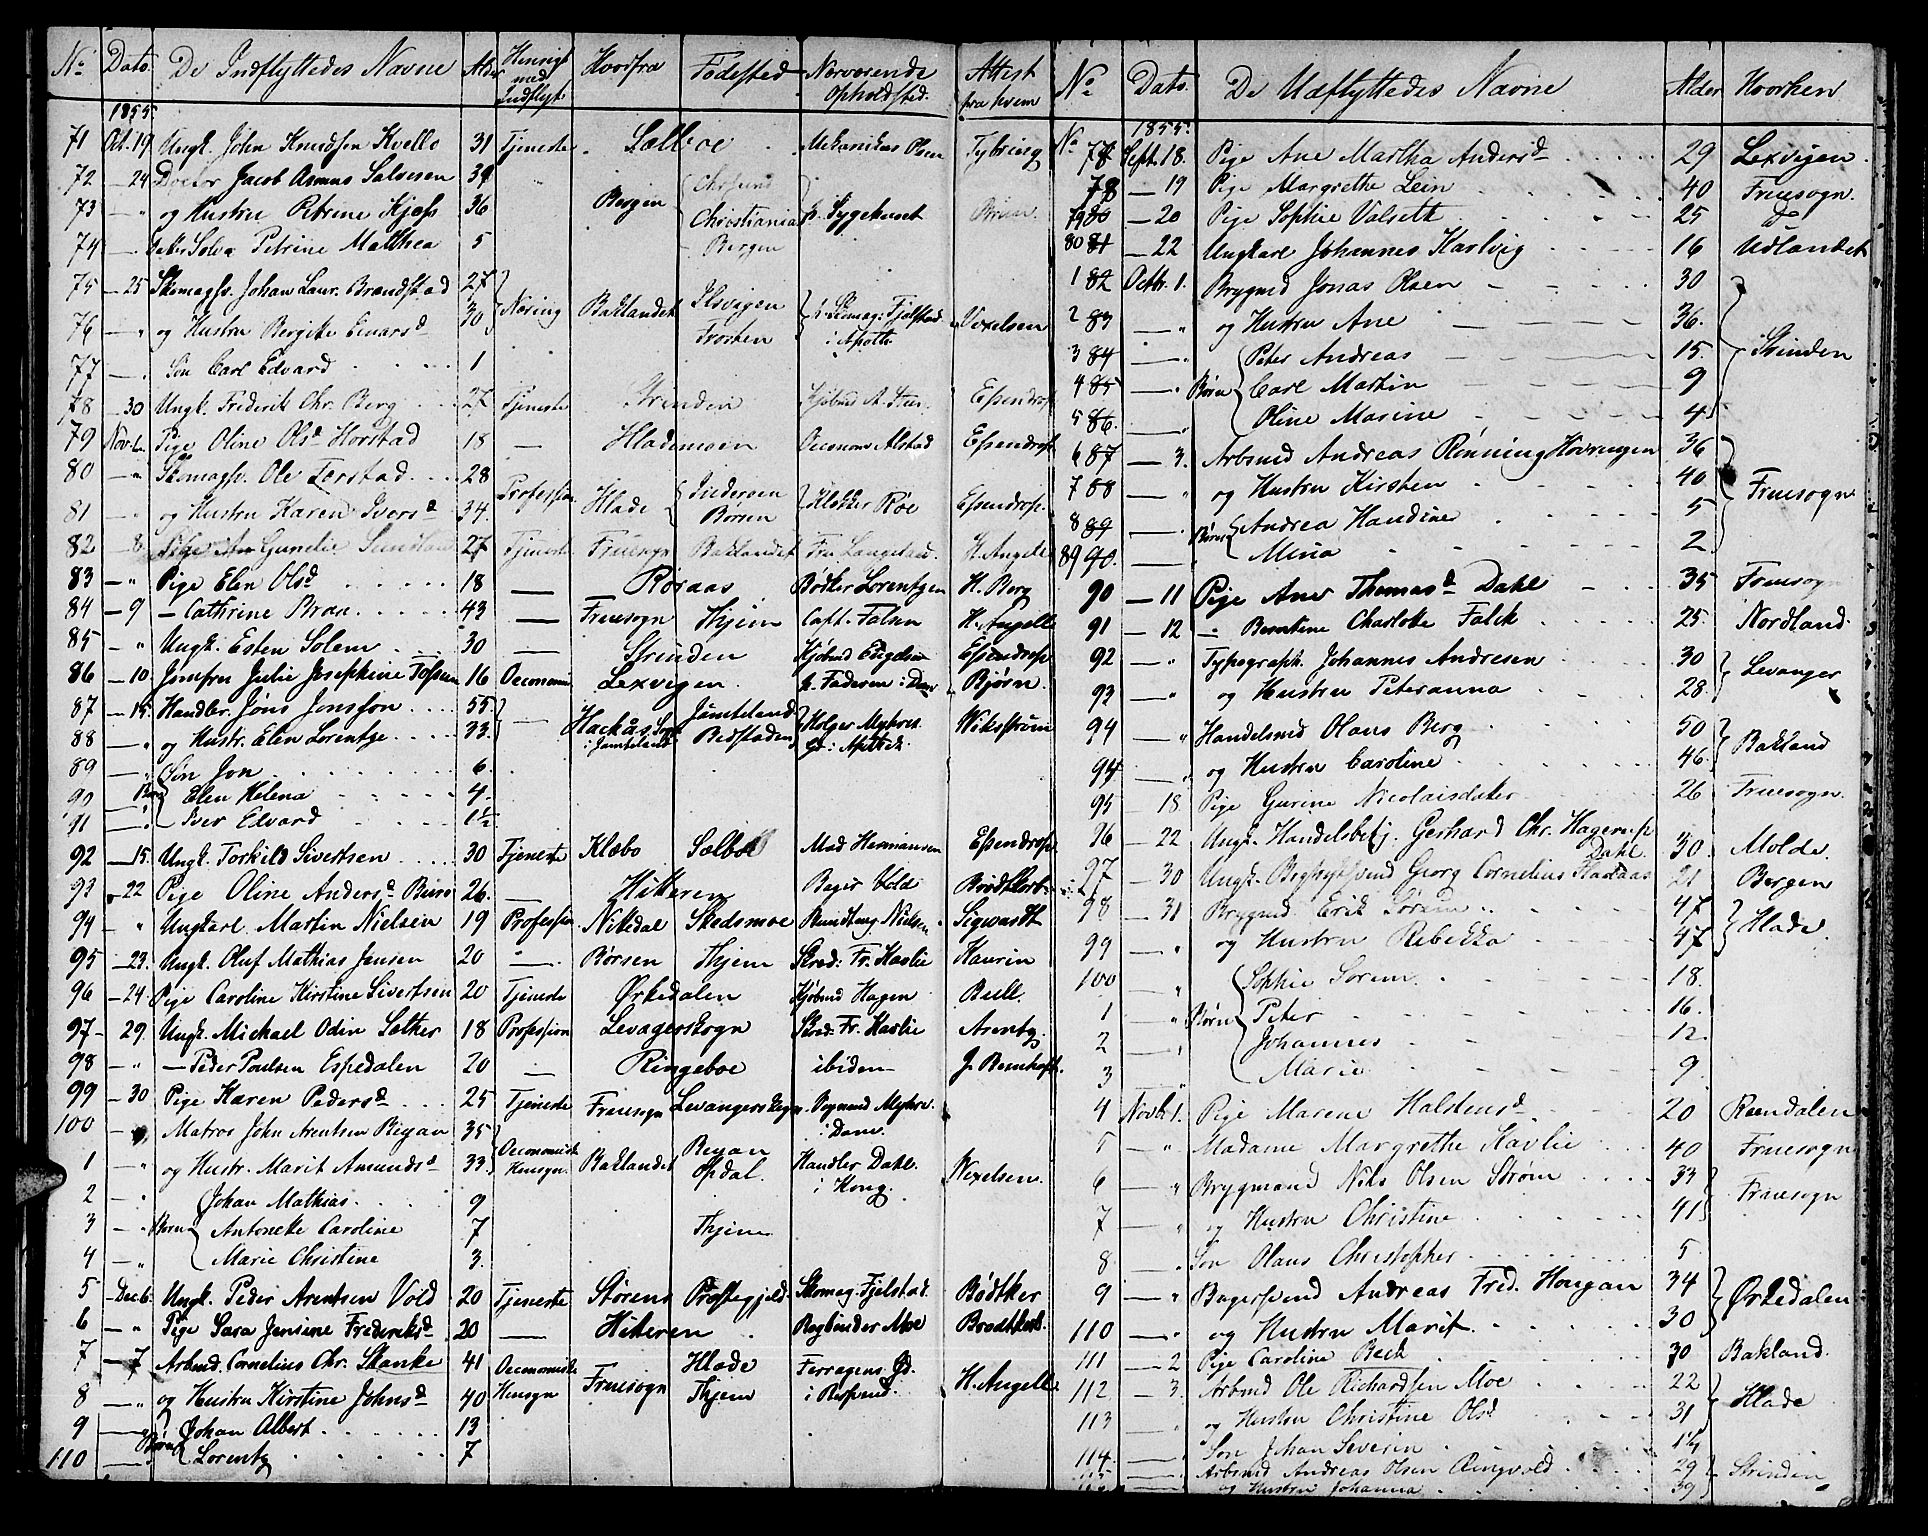 No Dato De Indflyttedes Navne Alder Hensigt med Indflyt. Hvorfra Fødested Nærværende Opholdsted. Attest fra hvem
1855.
71 Oct. 19 Ungk. John Knudsen Kvello 31 Tjeneste Sælboe Mekanikus Olsen
72 — 24 Doctor Jacob Asmus Salvesen 39 Bergen Chrsund
73 — " og Hustru Petrine Kjæss 36 Christiania Sygehuset Bruun
74 — Petrine Matthea 5 Bergen
75 — 25 Skomagsv. Johan Laur. Brandstad 27 Næring Baklandet Ilsvigen Skomag. Fjelstad Vexelsen
76 — " og Hustru Bergitte Einarsd 30 Frosten i Apoth.
77 — " Søn Carl Edvard 1
78 — 30 Ungk. Frederik Chr. Berg 27 Tjeneste Strinden Essendrop
79 Nov. 6 Pige Oline Olsd Horstad 18 — Hlademoen Oeconom Alstad Essendrop
80 — " Skomagsv. Ole Torstad 28 Profession Hlade Inderøen Klokker Roe Essendrop.
81 — " og Hustru Karen Iversd 34. Børsen
82 — 8 Pige An Gunelie 27 Tjeneste Fruesogn Baklandet Fru Langeland. H. Angell
83 — " Pige Elen Olsd 18 — Røraas Bødker Lorentzen H. Berg
84 — 9 — Cathrine Bran 43 — Fruesogn Thjem Capt. Falsen H. Angell
85 — " Ungk. Esten Solem 30 — Strinden Kjøbmd Engelsen Essendrop
86 — 10 Jomfru Julie Josephine Tossum 16 Oeconom Lexvigen h. Faderen i Dom Bjørn.
87 — 15 Handler. Jøns Jonsson 55 — Hackås Sogn Jämteland Holger Myhret Wikström
88 — " og Hustr. Elen Lorentze 33. i Jämteland Bedstaden i Apothek.
89 — " Søn Jon 6.
90 — Børn Elen Helena 4.
91 — Iver Edvard 1½
92 — 15. Ungk. Torkild Sivertsen 30 Tjeneste Klæbo Sælboe Mad Hermansen Essendrop
93 — 22 Pige Oline Andersd Buro 26. — Hitteren Bager Vold Brodtkorb
94 — " Ungkarl Martin Nielsen 19 Profession Nittedal Skedsmoe Bundtmg Nielsen Sigwardt
95 — 23. Ungk. Oluf Mathias Jensen 20 — Børsen Thjem Skred: Fr. Havlie Kaurin
96 — 24 Pige Caroline Kirstine Sivertsen 20 Tjeneste Ørkedalen Kjøbmd Hagen Bull.
97 — 29. Ungk. Michael Odin Sæther 18 Profession Levagerskogn Skred: Fr. Havlie Arentz.
98 — " — Peder Poulsen Espedalen 20 — Ringeboe ibidem
99 — 30 Pige Karen Pedersd 25 Tjeneste Fruesogn Levangerskogn
100 — Matros John Arentsen Bigan 35 Oeconomiske Hensyn Baklandet Bejan i Dom.
1 — " og Hustr. Marit Amundsd 33. Opdal. Handler Dahl. i Kong. Vexelsen.
2 — " Johan Mathias 9
3 — " Børn Antonette Caroline 7 Thjem
4 — " Marie Christine 3.
5 — Dec 6. Ungk. Peder Arentsen Vold 20 Tjeneste Størens Præstegjeld. Skomag. Fjelstad. Bødtker
6 — " Pige Sara Jensine Frederiksd 20 — Hitteren Bogbinder Moe Brodtkorb.
7 — 7 Arbmd. Cornelius Chr. Skanke 41 Oeconomiske Hensyn Fruesogn Hlade Ferragens Gd. H. Angell
8 — " og Hustru Kirstine Johnsd 40 Thjem
9 — " Børn Johan Albert 13
110 — Lorentz 7

No Dato. De Udflyttedes Navne Alder Hvorhen
1855.
No 78 Sept. 18. Pige Ane Martha Andersd 29 Lexvigen.
78 — 19 Pige Margrethe Lein 40 Fruesogn.
79 80 — 20 Pige Sophie Valseth 25 do
80 81 — 22 Ungkarl Johannes Karlvig 16 Udlandet
1 82 Octb. 1. Brygmd Jonas Olsen 30 Strinden
2 83 — " og Hustru Ane 36.
3 84 — " Peter Andreas 15.
4 85 — " Børn Carl Martin 9
5 86. — " Oline Marine 4
6 87 — 3. Arbmd Andreas Rønning Høvringen 36 Fruesogn
7 88 — " og Hustru Kirsten 40
8 89 — " Børn Andrea Handine 5
89 90. — Mina 2
90 — 11 Pige Ane Thomasd Dahl 35 Fruesogn
91 — 12 — Berntine Charlotte Falck 25. Nordland.
92 — " Typograph. Johannes Andresen 30 Levanger
93 — " og Hustru Peteranna 28.
94 — " Handelsmd Olaus Berg 50 Bakland
94 — " og Hustru Caroline 46.
95 — 18 Pige Gurine Nicolaisdatter 26 Fruesogn.
96 — 22 Ungk. Handelsbetj. Gerhard Chr. Hagerup Dahl. 30. Molde.
97 — 30 Ungk. Georg Cornelius 21 Bergen
98 — 31 Brygmd Erik Sørum 47 Hlade.
99 — " og Hustru Rebekka 47
100 — " Sophie Sørem 18.
1 — " Børn Peter 16.
2 — " Johannes 12.
3 — " Marie 9
4 Novbr 1. Pige Marene Halstensd 20 Reendalen
5 — " Madame Margrethe Havlie 40 Fruesogn
6 — " Brygmand Nils Olsen Strøm 33 Fruesogn
7 — " og Hustru Christine 41
8 — " Søn Olaus Christopher 5.
9 — " Bagersvend Andreas Fred. Hougan 34 Ørkedalen
110 — " og Hustru Marit 30
111 — 2 Pige Caroline Beck 30 Bakland.
112 — 3. Arbmd Ole Richardsen Moe 22 Hlade
113 — " og Hustru Christine Olsd 31
114 — " Søn Johan Severin 1½
115 — Arbmd Andreas Olsen Ringvold 29 Strinden
og Hustru Johanna 39